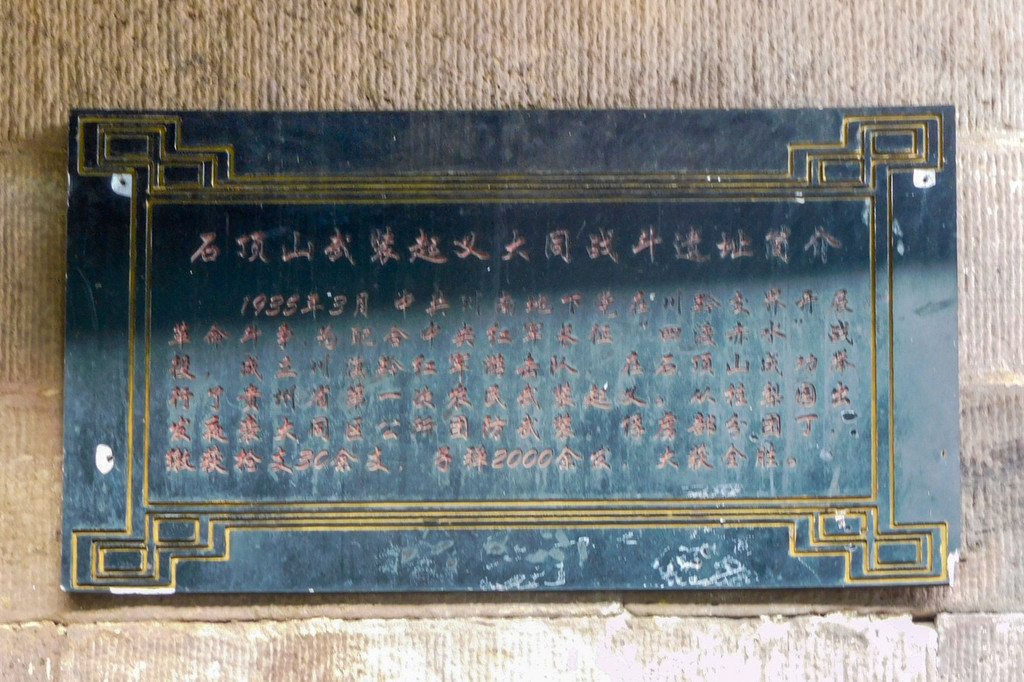 石顶山武装起义大同战斗遗址简介
1935年3月 中共川南地下党在川黔边界开展
革命斗争 为配合中央红军长征 四渡赤水战
役 成立川滇黔红军游击队 在石顶山成功举
行了贵州省第一次农民武装起义。从桂梨园出
发夜袭大同区公所团防武装 俘虏部分团丁
缴获枪支30余支 子弹2000余发 大获全胜。